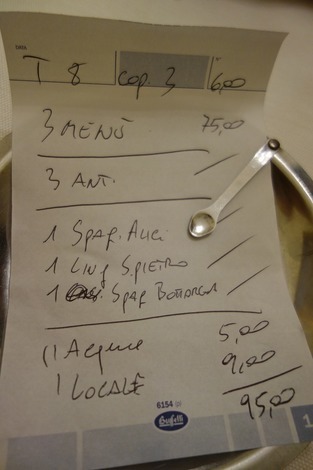 T 8 cop. 3 6,00
3 MENÙ 75,00
3 ANT.
1 SPAG. ALICI
1 LING S.PIETRO
1 SPAG BOTTARGA
1 Acqua 5,00
1 LOCALE 9,00
95,00
6154
Buffetti
1